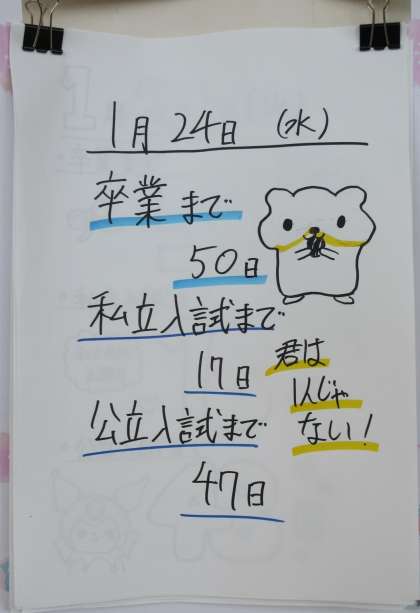 1月24日 (水)
卒業まで
50日
私立入試まで
17日
公立入試まで
47日
君は
1人じゃ
ない!